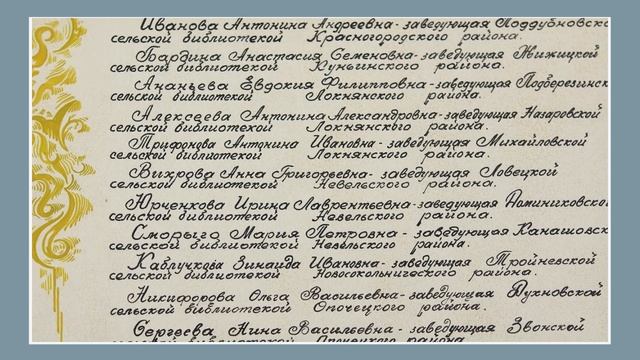 Иванова Антонина Андреевна - заведующая Поддубновско
сельской библиотекой Красногородского района.
Бардина Анастасия Семеновна - заведующая Жижицкой
сельской библиотекой Куньинского района.
Ананьева Евдокия Филипповна - заведующая Подберезинск
сельской библиотекой Локнянского района.
Алексеева Антонина Александровна - заведующая Назаровской
сельской библиотекой Локнянского района.
Трифонова Антонина Ивановна - заведующая Михайловской
сельской библиотекой Локнянского района.
Вихрова Анна Григорьевна - заведующая Ловецкой
сельской библиотекой Невельского района.
Юрченкова Ирина Лаврентьевна - заведующая
сельской библиотекой Невельского района.
Сморыго Мария Петровна - заведующая Канашовск
сельской библиотекой Невельского района.
Каблучкова Зинаида Ивановна - заведующая Тройневской
сельской библиотекой Новосокольнического района.
Никифорова Ольга Васильевна - заведующая Духновской
сельской библиотекой Опочецкого района.
Сергеева Нина Васильевна - заведующая Звонской
сельской библиотекой Опочецкого района.